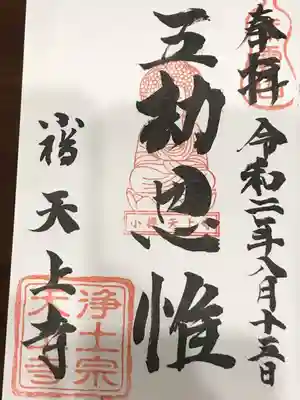 奉拝
令和二年八月十三日
五劫思惟
小樽天上寺
小樽天上寺
浄土宗
天上寺